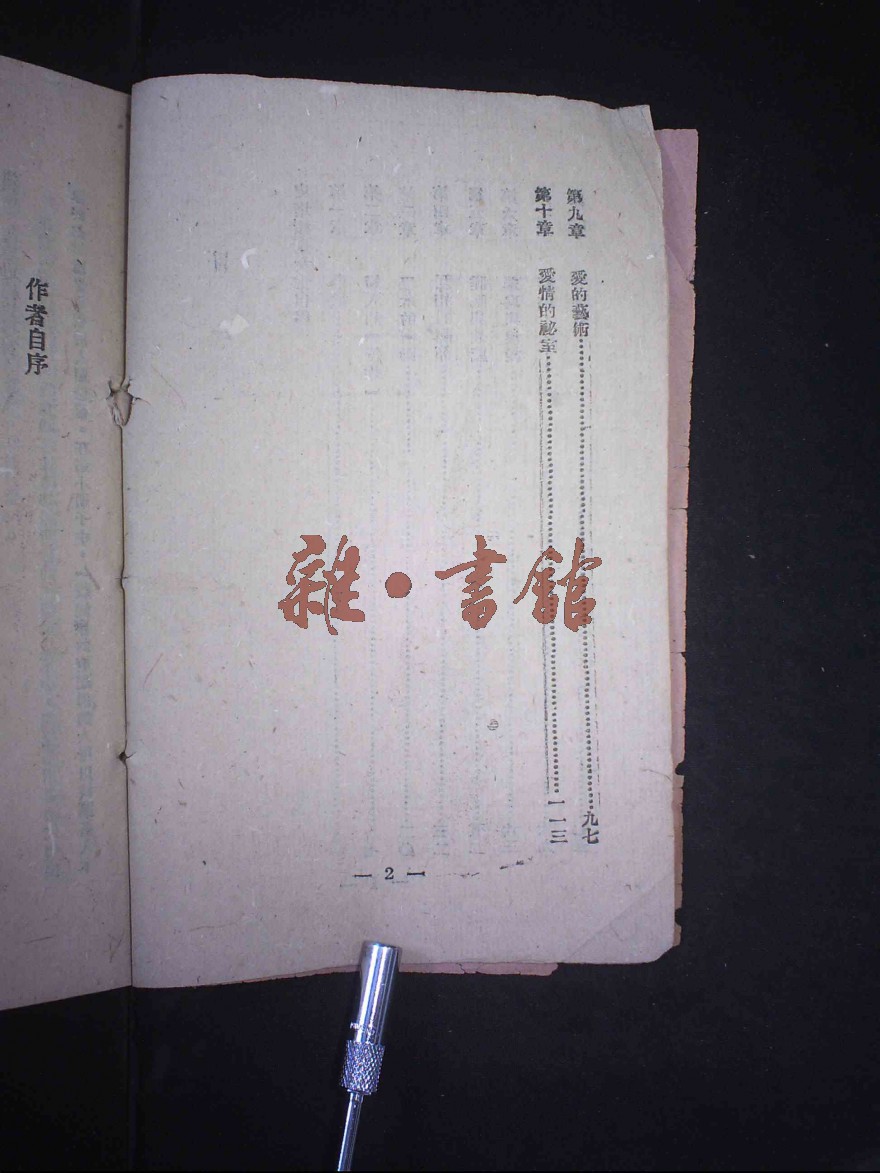 第九章　愛的藝術⋯⋯⋯⋯⋯⋯⋯⋯⋯⋯九七
第十章　愛情的祕室⋯⋯⋯⋯⋯⋯⋯⋯⋯⋯一一三
— 2 —
作者自序
雜・書館